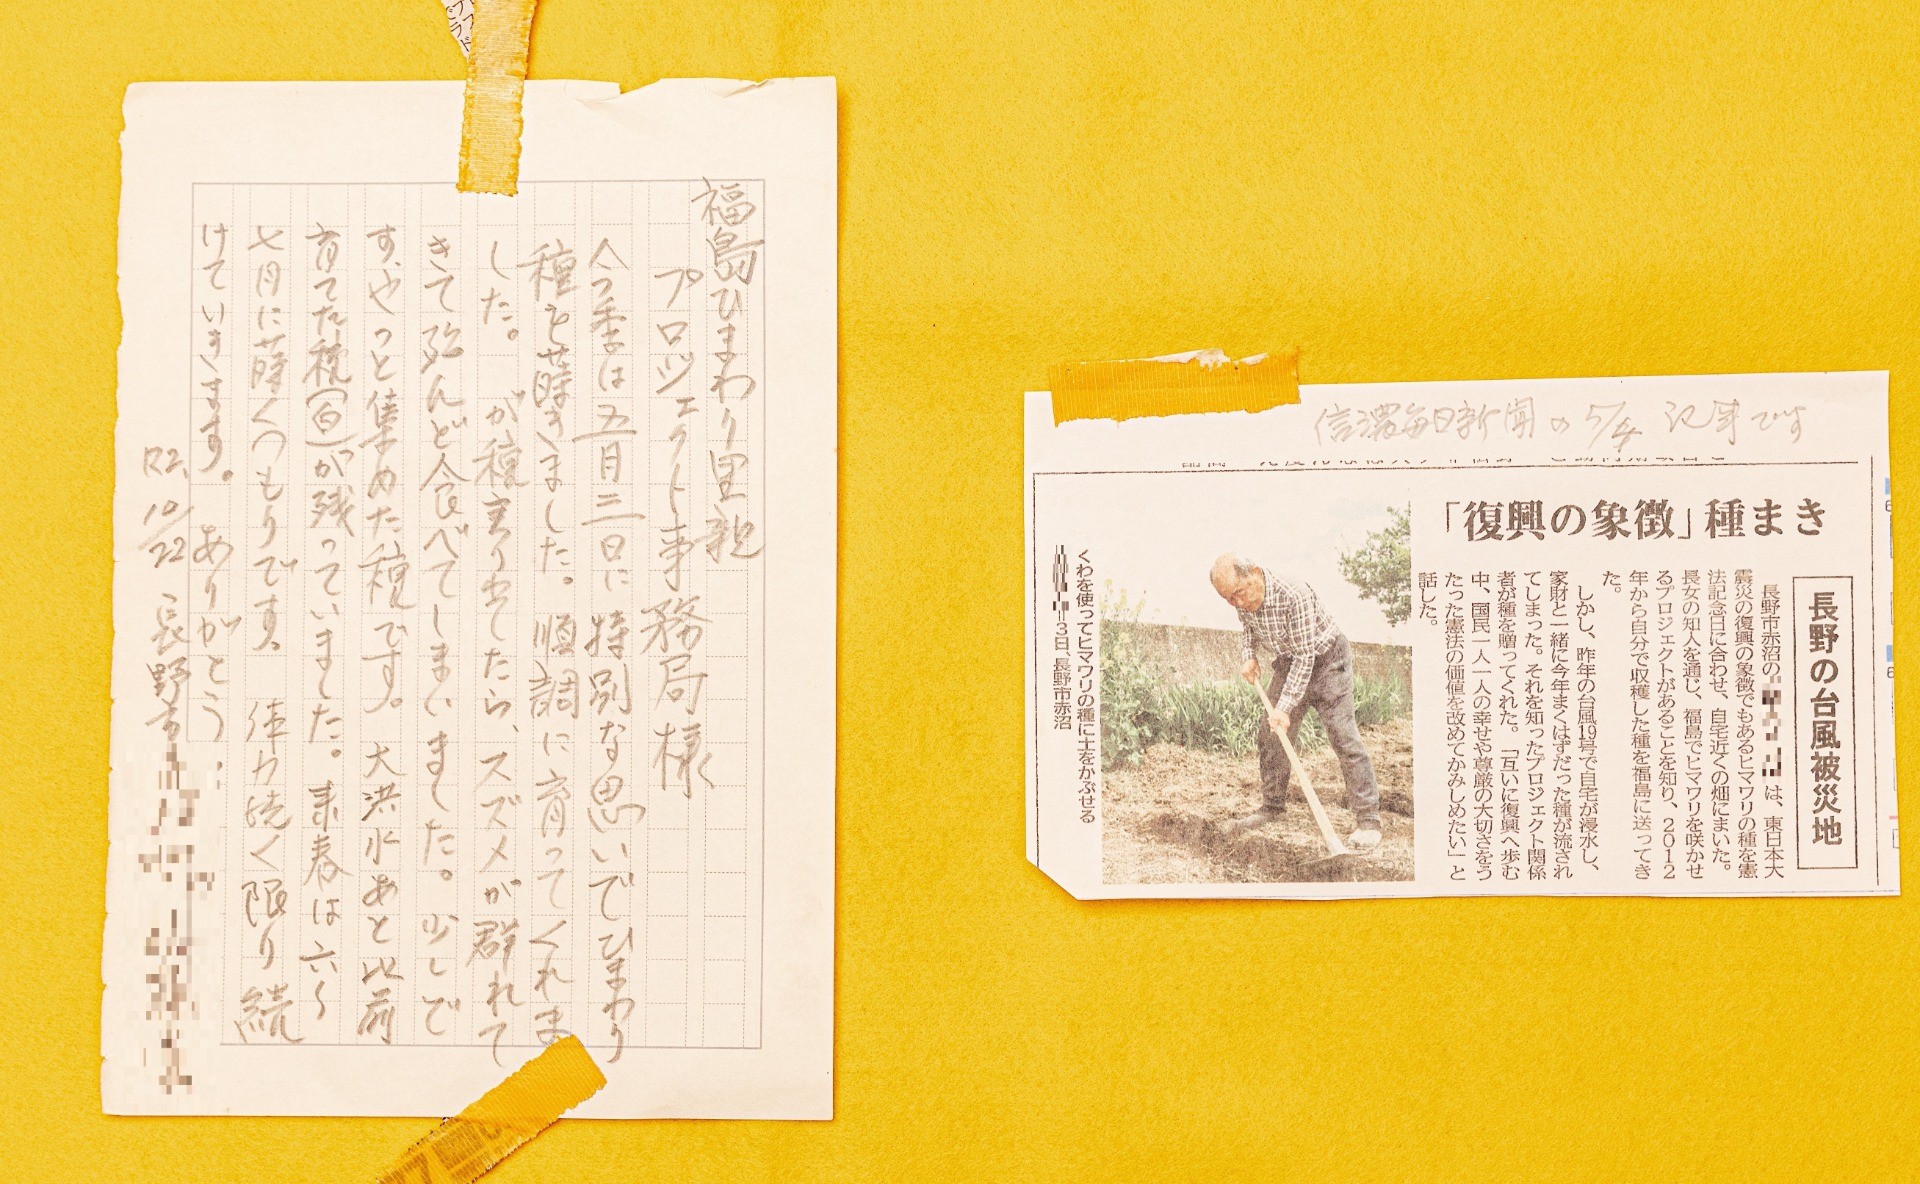 福島ひまわり里親
プロジェクト事務局様
今季は五月三日に特別な思いでひまわり
種を蒔きました。順調に育ってくれま
した。が種実り出たら、スズメが群れて
きて殆んど食べてしまいました。少しで
す、やっと集めた種です。大洪水あと以前
育てた種(白)が残っていました。来春は六〜
七月に蒔くつもりです。体力続く限り続
けていきます。ありがとう
R2. 10/22 長野市
信濃毎日新聞の5/4記事です
「復興の象徴」種まき
長野の台風被災地
長野市赤沼の は、東日本大
震災の復興の象徴でもあるヒマワリの種を憲
法記念日に合わせ、自宅近くの畑にまいた。
長女の知人を通じ、福島でヒマワリを咲かせ
るプロジェクトがあることを知り、2012
年から自分で収穫した種を福島に送ってき
た。
しかし、昨年の台風19号で自宅が浸水し、
家財と一緒に今年まくはずだった種が流され
てしまった。それを知ったプロジェクト関係
者が種を贈ってくれた。「互いに復興へ歩む
中、国民一人一人の幸せや尊厳の大切さをう
たった憲法の価値を改めてかみしめたい」と
話した。
くわを使ってヒマワリの種に土をかぶせる
3日、長野市赤沼